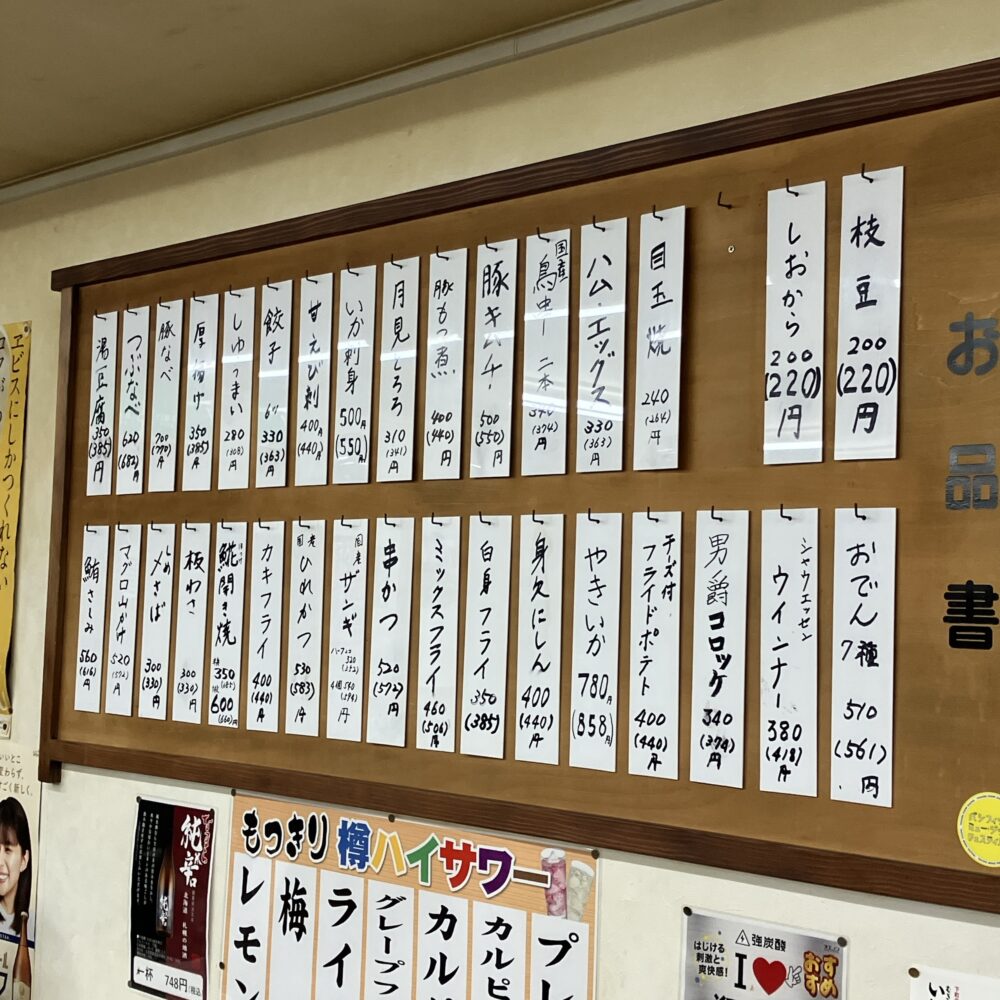 お品書
枝豆 200 (220)円
しおから 200 (220)円
目玉焼 240 (264)円
ハム・エッグス 330 (363)円
国産 鳥串 二本 340 (374)円
豚キムチ 500 (550)円
豚もつ煮 400 (440)円
月見とろろ 310 (341)円
いか刺身 500円 (550)円
甘えび刺 400円 (440)円
餃子 6ケ 330 (363)円
しゅうまい 280 (308)円
厚揚げ 350 (385)円
豚なべ 700 (770)円
つぶなべ 620 (682)円
湯豆腐 350 (385)円
おでん 7種 510 (561)円
シャウエッセン ウインナー 380 (418)円
男爵コロッケ 340 (374)円
チーズ付 フライドポテト 400 (440)円
やきいか 780円 (858)円
身欠にしん 400 (440)円
白身フライ 350 (385)
ミックスフライ 460 (506)円
串かつ 520 (572)円
国産 ザンギ ハーフ 320 (352) 4個 540 (594)円
国産 ひれかつ 530 (583)円
カキフライ 400 (440)円
ほっけ 鯱開き焼 350 (385) 600 (660)円
板わさ 300 (330)円
しめ 〆さば 300 (330)円
マグロ山かけ 520 (572)円
鮪さしみ 560 (616)円
ヱビスにしかつくれない
いいとこ
変わらず、
すごく新しく。
純米
北海道 札幌の地酒
一杯 748円(税込)
もっきり 樽ハイサワー
レモン
梅
ライ
グレープフ
カル
カルピ
プレ
強炭酸
はじける
刺激と
爽快感!
I
おすすめ
い